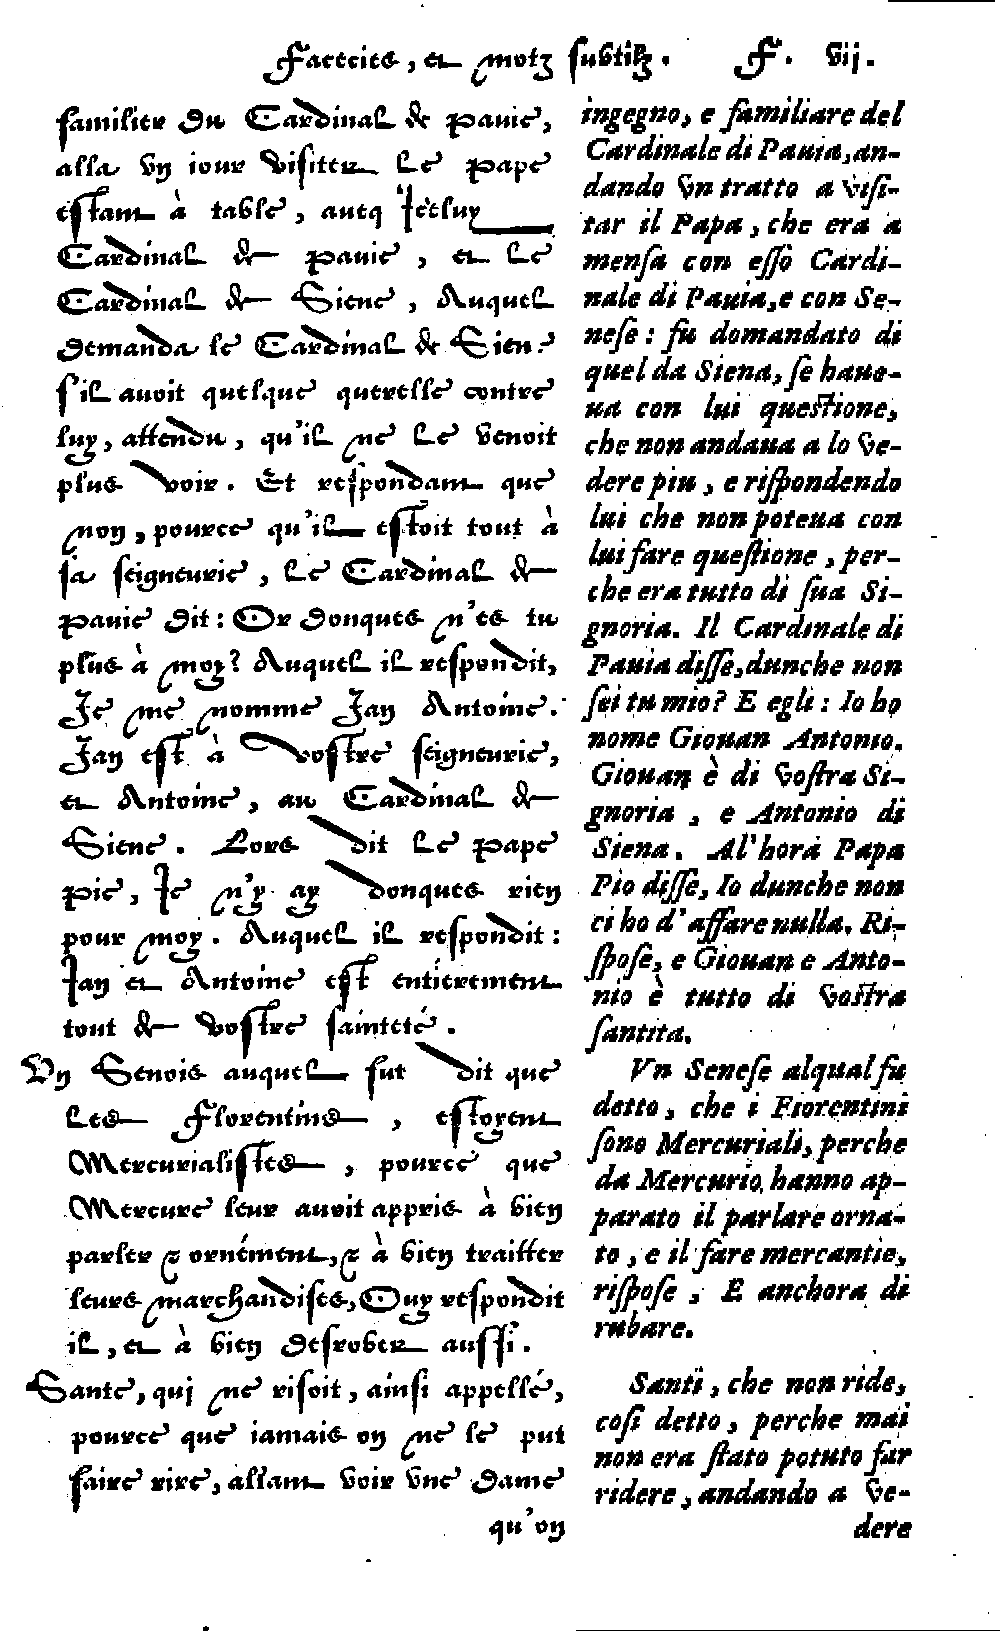 Facecies, et motz subtilz. F. vij.
familier du Cardinal de pavie,
alla vn iour visiter le pape
estant à table, aueq Iceluy
Cardinal de pavie, et le
Cardinal de Siene, Auquel
demanda le Cardinal de Siene
s'il avoit quelque querelle contre
luy, attendu, qu'il ne le venoit
plus voir. Et respondant que
non, pource qu'il estoit tout à
sa seigneurie, le Cardinal de
pavie dit: Or donques n'es tu
plus à moy? Auquel il respondit,
Je me nomme Jan Antoine.
Jan est à vostre seigneurie,
et Antoine, au Cardinal de
Siene. Lors dit le pape
pie, Je n'y ay donques rien
pour moy. Auquel il respondit:
Jan et Antoine est entierement
tout de vostre sainteté.
Vn Senois auquel fut dit que
les Florentins, estoyent
Mercurialistes, pource que
Mercure leur avoit appris à bien
parler & ornément, & à bien traitter
leurs marchandises, Ouy respondit
il, et à bien desrober aussi.
Sante, qui ne risoit, ainsi appellé,
pource que iamais on ne le put
faire rire, allant voir vne dame
qu'on
ingegno, e familiare del
Cardinale di Pauia, an-
dando vn tratto a visi-
tar il Papa, che era a
mensa con esso Cardi-
nale di Pauia, e con Se-
nese: fu domandato di
quel da Siena, se haue-
ua con lui questione,
che non andaua a lo ve-
dere piu, e rispondendo
lui che non poteua con
lui fare questione, per-
che era tutto di sua Si-
gnoria. Il Cardinale di
Pauia disse, dunche non
sei tu mio? E egli: Io ho
nome Giouan Antonio.
Giouan è di vostra Si-
gnoria, e Antonio di
Siena. Al'hora Papa
Pio disse, Io dunche non
ci ho d'affare nulla. Ri-
spose, e Giouan e Anto-
nio è tutto di vostra
santita.
Vn Senese alqual fu
detto, che i Fiorentini
sono Mercuriali, perche
da Mercurio hanno ap-
parato il parlare orna-
to, e il fare mercantie,
rispose, E anchora di
rubare.
Santi, che non ride,
cosi detto, perche mai
non era stato potuto far
ridere, andando a ve-
dere